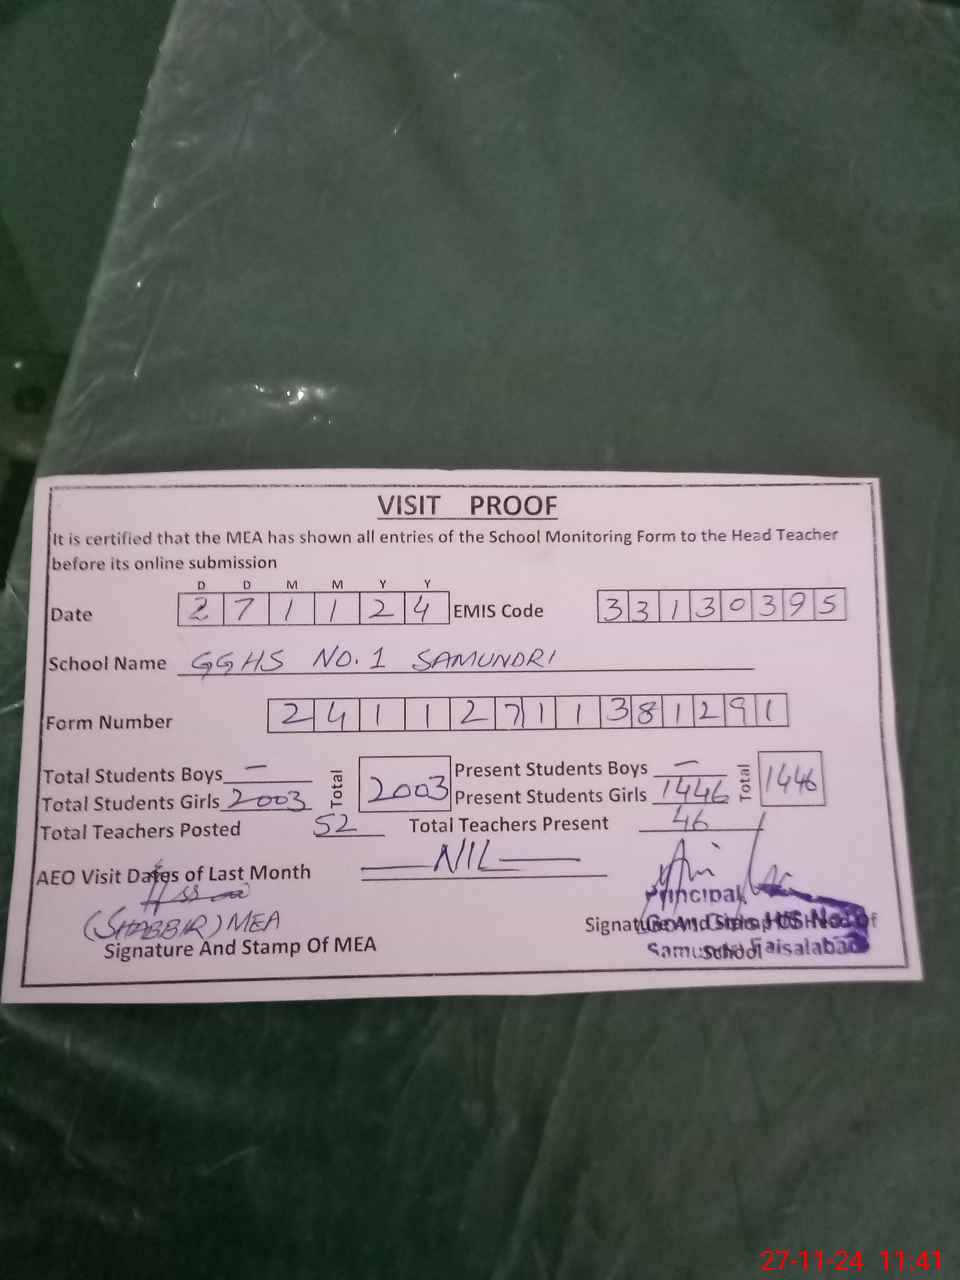 VISIT PROOF
It is certified that the MEA has shown all entries of the School Monitoring Form to the Head Teacher
before its online submission
D D M M Y Y
Date 2 7 1 1 2 4 EMIS Code 3 3 1 3 0 3 9 5
School Name GGHS NO. 1 SAMUNDRI
Form Number 2 4 1 1 2 7 1 1 3 8 1 2 9 1
Total Students Boys — Total 2003 Present Students Boys — Total 1446
Total Students Girls 2003 Present Students Girls 1446
Total Teachers Posted 52 Total Teachers Present 46
AEO Visit Dates of Last Month NIL
Principal
(SHABBIR) MEA
Signature And Stamp Of MEA
Signature And Stamp Of Head of
School
Govt Girls HS No.1
Samundri Faisalabad
27-11-24 11:41